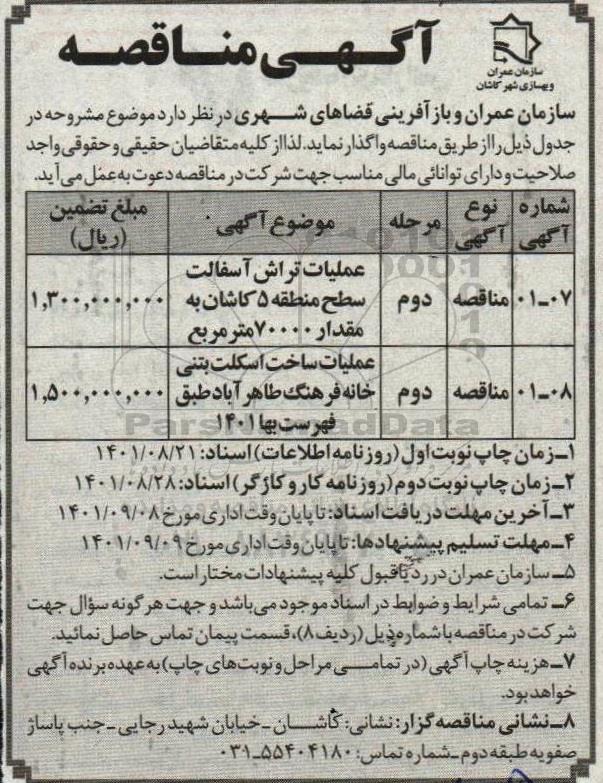 آگهی مناقصه
سازمان عمران
و بهسازی شهر کاشان
سازمان عمران و بازآفرینی فضاهای شهری در نظر دارد موضوع مشروحه در
جدول ذیل را از طریق مناقصه واگذار نماید. لذا از کلیه متقاضیان حقیقی و حقوقی واجد
صلاحیت و دارای توانائی مالی مناسب جهت شرکت در مناقصه دعوت به عمل می آید.
شماره آگهی نوع آگهی مرحله موضوع آگهی مبلغ تضمین (ریال)
۰۷-۰۱ مناقصه دوم عملیات تراش آسفالت سطح منطقه ۵ کاشان به مقدار ۷۰۰۰۰ متر مربع ۱,۳۰۰,۰۰۰,۰۰۰
۰۸-۰۱ مناقصه دوم عملیات ساخت اسکلت بتنی خانه فرهنگ طاهر آباد طبق فهرست بها ۱۴۰۱ ۱,۵۰۰,۰۰۰,۰۰۰
ParsNamadData
۱ـ زمان چاپ نوبت اول (روزنامه اطلاعات) اسناد: ۱۴۰۱/۰۸/۲۱
۲ـ زمان چاپ نوبت دوم (روزنامه کار و کارگر) اسناد: ۱۴۰۱/۰۸/۲۸
۳ـ آخرین مهلت دریافت اسناد: تا پایان وقت اداری مورخ ۱۴۰۱/۰۹/۰۸
۴ـ مهلت تسلیم پیشنهادها: تا پایان وقت اداری مورخ ۱۴۰۱/۰۹/۰۹
۵ـ سازمان عمران در رد یا قبول کلیه پیشنهادات مختار است.
۶ـ تمامی شرایط و ضوابط در اسناد موجود می باشد و جهت هر گونه سؤال جهت
شرکت در مناقصه با شماره ذیل (ردیف ۸)، قسمت پیمان تماس حاصل نمائید.
۷ـ هزینه چاپ آگهی (در تمامی مراحل و نوبت های چاپ) به عهده برنده آگهی
خواهد بود.
۸ـ نشانی مناقصه گزار: نشانی: کاشان ـ خیابان شهید رجایی ـ جنب پاساژ
صفویه طبقه دوم ـ شماره تماس: ۵۵۴۰۴۱۸۰-۰۳۱